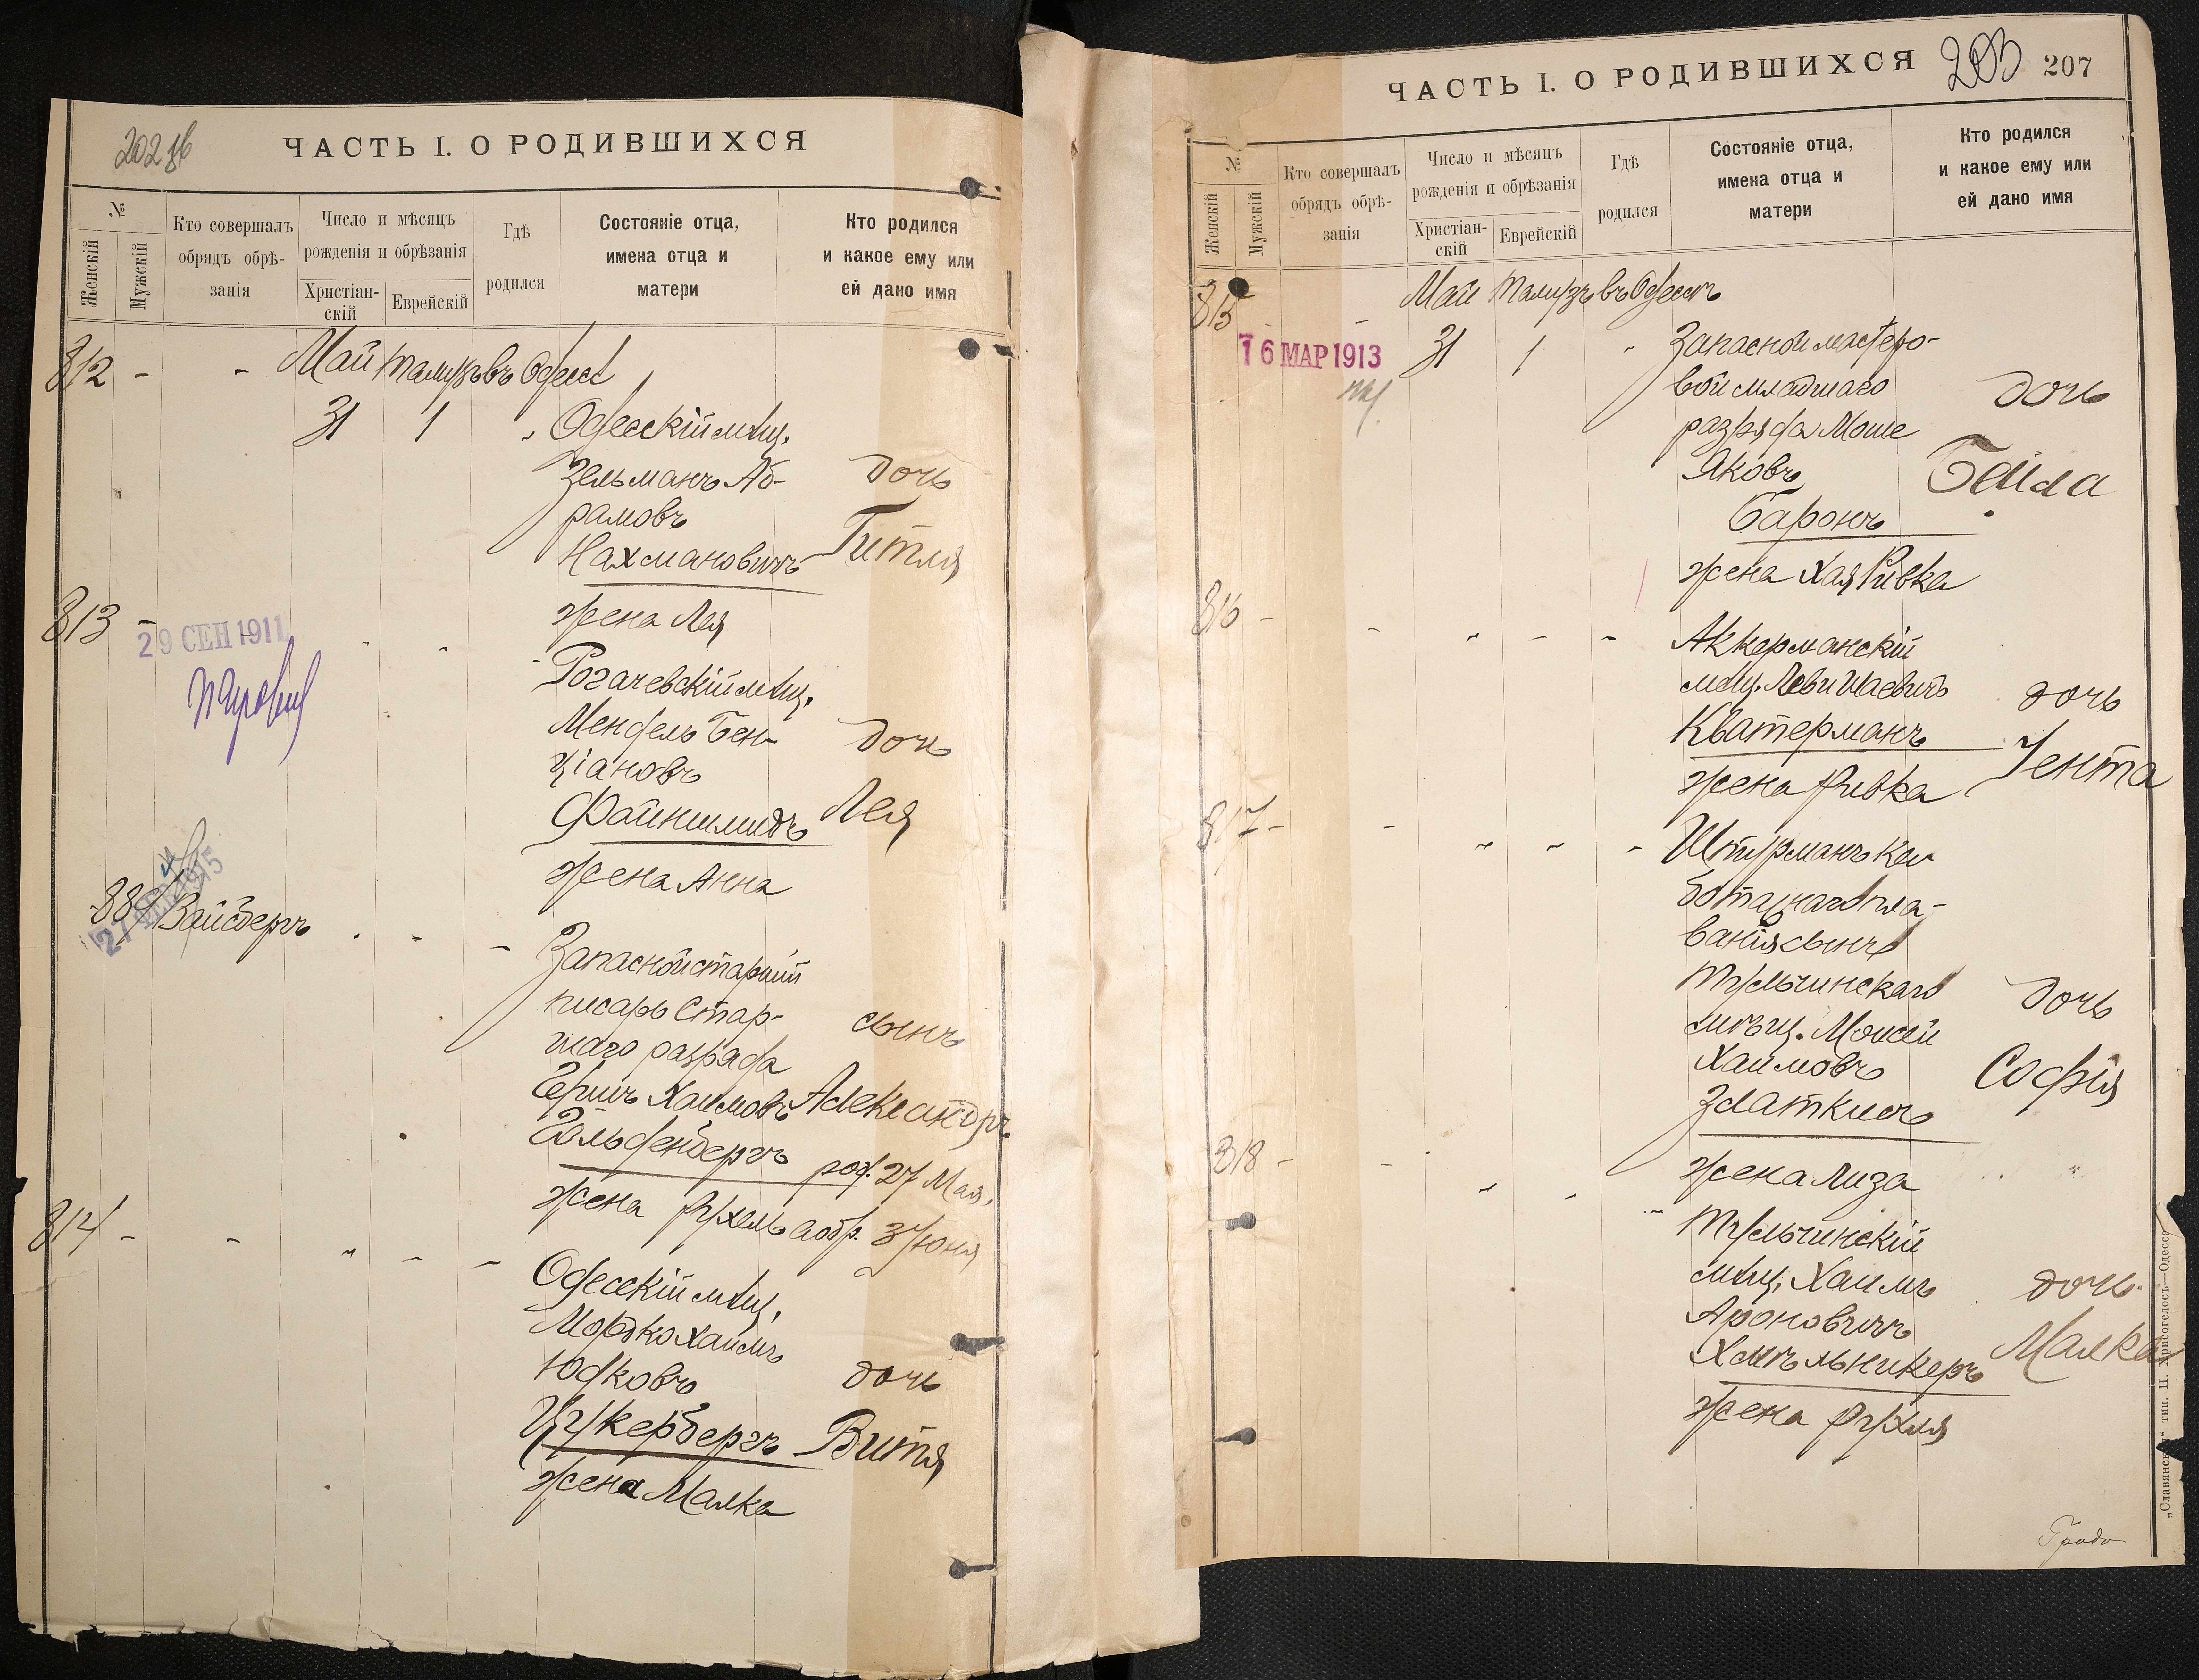 202 об
ЧАСТЬ I. О РОДИВШИХСЯ
№
Женскій
Мужскій
Кто совершалъ
обрядъ обрѣ-
занія
Число и мѣсяцъ
рожденія и обрѣзанія
Христіан-
скій
Еврейскій
Гдѣ
родился
Состояніе отца,
имена отца и
матери
Кто родился
и какое ему или
ей дано имя
812 - - Май Тамузъ въ Одессѣ
31 1 „ Одесскій мѣщ.
Зельманъ Аб-
рамовъ
Нахмановичъ
жена Лея
дочь
Гитля
813 -
29 СЕН 1911
- Рогачевскій мѣщ.
Мендель Бен-
ціановъ
Файншмидъ
жена Анна
дочь
Лея
889 Вайсбергъ
- Запасной старшій
писарь Стар-
шаго разряда
Гершъ Хаимовъ
Гольденбергъ
жена Рухель
сынъ
Александръ
род. 27 Мая.
а обр. 3 Юня
814 - - „ - - Одесскій мѣщ.
Мордко Хаимъ
Юдковъ
Цукербергъ
жена Малка
дочь
Витя
ЧАСТЬ I. О РОДИВШИХСЯ
203 207
№
Женскій
Мужскій
Кто совершалъ
обрядъ обрѣ-
занія
Число и мѣсяцъ
рожденія и обрѣзанія
Христіан-
скій
Еврейскій
Гдѣ
родился
Состояніе отца,
имена отца и
матери
Кто родился
и какое ему или
ей дано имя
815 - - Май Тамузъ въ Одессѣ
16 МАР 1913
31 1 „ Запасной мастеро-
вой младшаго
разряда Моше
Яковъ
Баронъ
жена Хая Ривка
дочь
Бейла
816 - - „ - - Аккерманскій
мѣщ. Леви Шаевичъ
Кватерманъ
жена Ривка
дочь
Іента
817 - - „ - - Штурманъ ка-
ботажнаго пла-
ванія сынъ
Тульчинскаго
мѣщ. Моисей
Хаимовъ
Златкисъ
жена Лиза
дочь
Софія
818 - - „ - „ Тульчинскій
мѣщ. Хаимъ
Ароновичъ
Хмѣльникеръ
жена Рухля
дочь
Малка
„Славянская“ тип. Н. Хрисогелосъ—Одесса